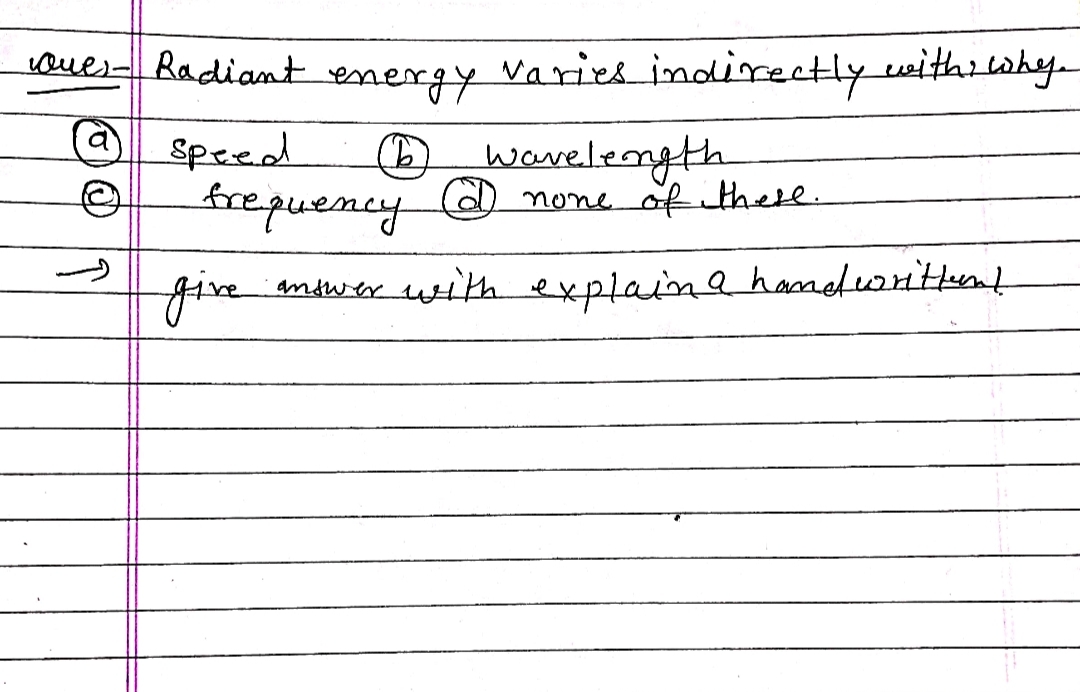 Ques- Radiant energy varies indirectly with, why.
(a) speed (b) wavelength
(c) frequency (d) none of these.
→ give answer with explain a handwritten!